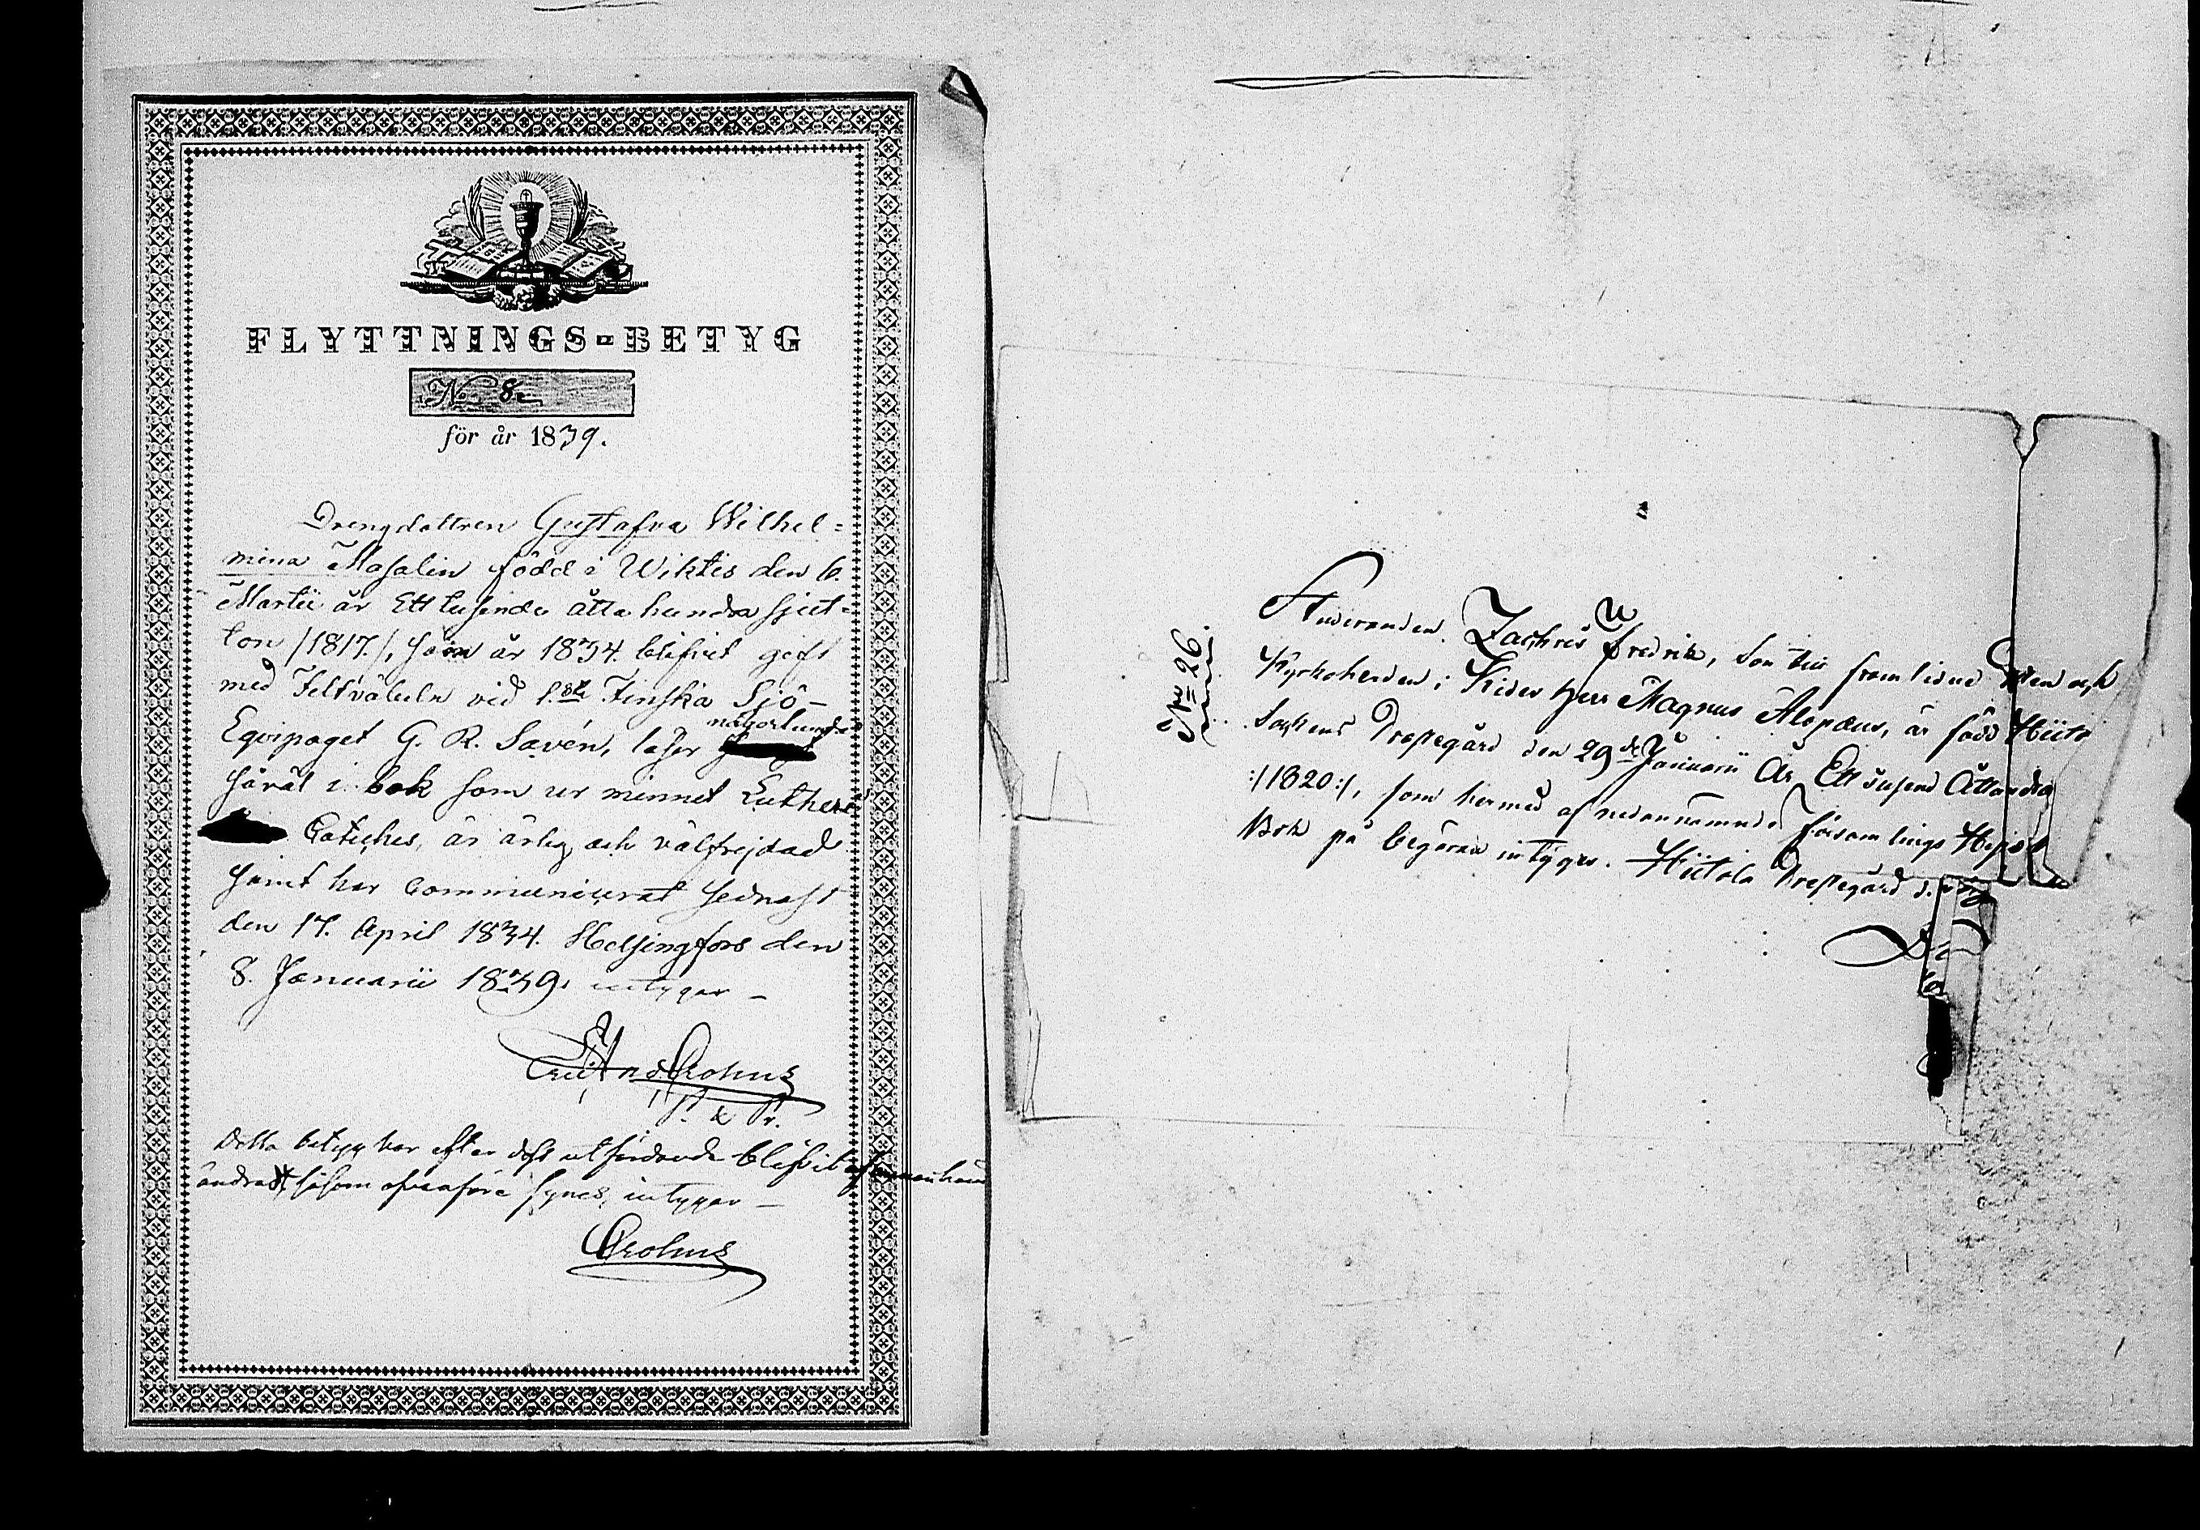 FLYTTNINGS-BETYG
No 8
för år 1839.
Drengdottren Gustafva Wilhel=
mina Masalin född i Wiktis den 6.
Martii år Ett tusende åtta hundra sjut=
ton /1817./, som år 1834. blifvit gift
med Feltväbeln vid 1.sta Finska Sjö-
Eqvipaget G. R. Savén, läser någorlunda
såväl i bok som ur minnet Lutheri
Cateches, är ärlig och välfrejdad
samt har communicerat sednast
den 17. April 1834. Helsingfors den
8. Januarii 1839. intygar –
And. Crohns
P. & Pr.
Detta betyg har efter dess utfärdande blifvit af annan hand
ändradt såsom ofvanföre synes, intygar –
Crohns
No 26.
Studeranden Zachris Fredrik, Son till framlidne och
Kyrkoherden i Kides Herr Magnus Alopæus, är född i Hiito
Sockens Prestegård den 29de Januarii År Ett tusend Åttahundra
:/1820:/, som hermed af nedannämnde Församlings
Bok på begäran intygas. Hiitola Prestegård d.